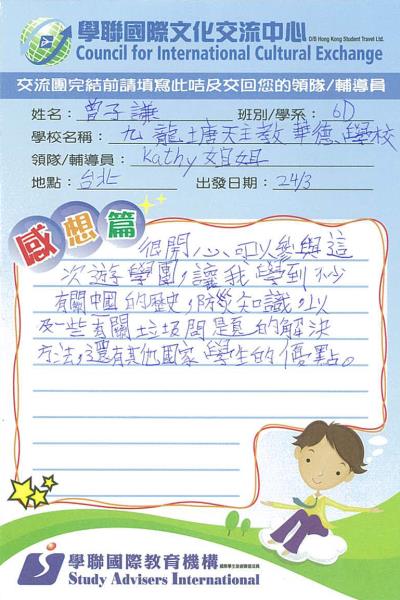 學聯國際文化交流中心 D/B Hong Kong Student Travel Ltd.
Council for International Cultural Exchange
交流團完結前請填寫此咭及交回您的領隊/輔導員
姓名：曾子謙 班別/學系：6D
學校名稱：九龍塘天主教華德學校
領隊/輔導員：Kathy姐姐
地點：台北 出發日期：24/3
感想篇
很開心可以參與這
次遊學團，讓我學到不少
有關中國的歷史，防災知識，以
及一些有關垃圾問題的解決
方法，還有其他國家學生的優點。
學聯國際教育機構
Study Advisers International